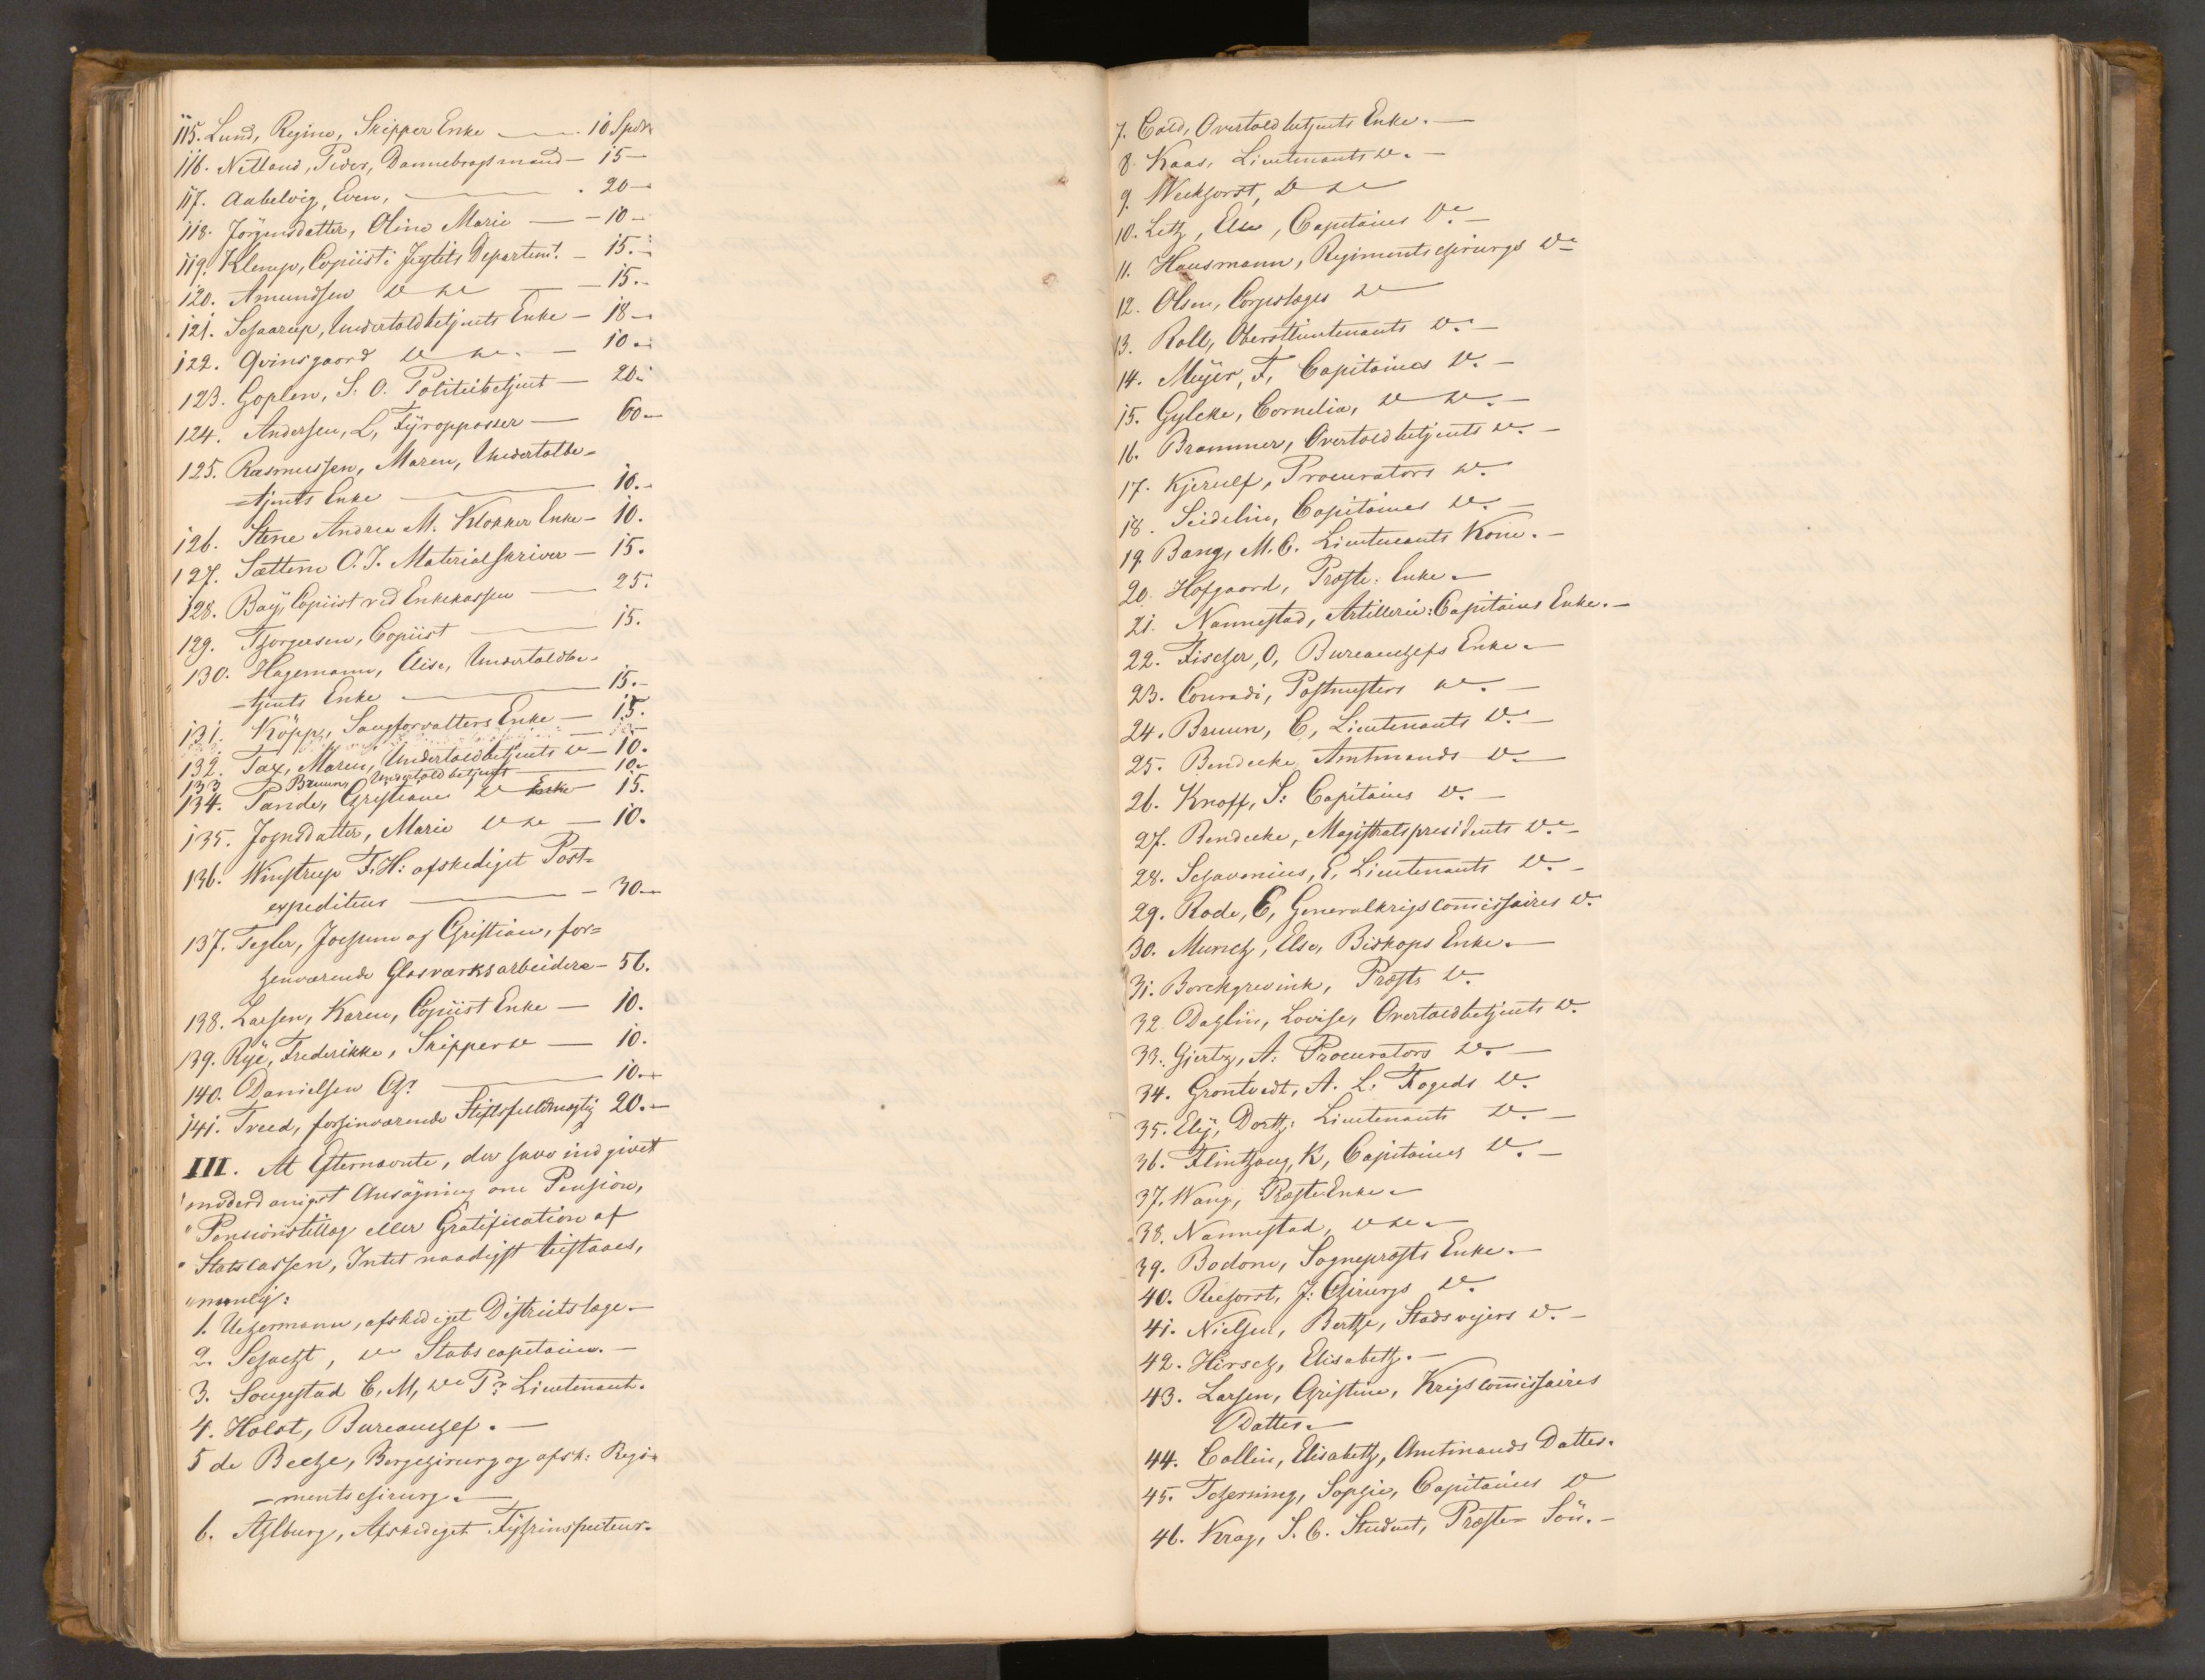 115. Lund, Regine, Skipper Enke — 10 Spdlr
116. Netland, Peder, Dannebrogsmand — 15 —
117. Aabelvig, Even, — 20 —
118. Jörgensdatter, Oline Marie — 10 —
119. Klemp, Copiist i Justits Departemt. — 15. —
120. Amundsen — 15. —
121. Schaarup, Undertoldbetjents Enke — 18 —
122. Qvinsgaard — 10 —
123. Goplen, S. O. Politiebetjent — 20.
124. Andersen, L, Fyropposser — 60 —
125. Rasmussen, Maren, Undertolbe=
=tjents Enke — 10. —
126. Stene Andrea M. Klokker Enke — 10.
127. Sættem O. J. Materialskriver — 15.
128. Baÿ, Copiist ved Enkekassen — 25.
129. Thorgersen, Copiist — 15.
130. Hagemann, Elise, Undertoldbe-
-tjents Enke — 15. —
131. Köpp, Saugforvalters Enke — 15.
132. Tax, Maren, Undertoldbetjents do — 10.
133 Bruun, Undertoldbetjents — 10 —
134. Pande, Christiane do Enke — 15.
135. Johnsdatter, Marie do do — 10.
136. Winstrup F. H: afskediget Post=
expediteur — 30 —
137. Tegler, Jochum og Christian, for=
henværende Glasværksarbeidere — 56.
138. Larsen, Karen, Copiist Enke — 10.
139. Rÿe, Frederikke, Skipper do — 10.
140. Danielsen Chr. — 10 —
141. Treed, forhenværende Stiftsfuldmægtig 20. —
III. At Efternævnte, der have indgivet
" underdanigst Ansögning om Pension,
" Pensionstillæg eller Gratification af
" Statscassen, Intet naadigst tilstaaes,
" nemlig:
1. Uchermann, afskediget Districtslæge. —
2. Schacht, do Stabscapitaine. —
3. Sougstad C. M, do Pr. Lieutenant.
4. Holst, Bureauchef. —
5 de Beche, Bergchirurg og afsk: Regi=
-mentschirurg. —
6. Ahlburg, Afskediget Fyhrinspecteur. —
7. Cold, Overtoldbetjents Enke. —
8. Kaas, Lieutenants do. —
9. Weckhorst, do do
10. Letz, Else, Capitaines Do. —
11. Hausmann, Regimentschirurgs do —
12. Olsen, Corpslæges do
13. Roll, Oberstlieutenants do. —
14. Meÿer, F, Capitaines do. —
15. Gylche, Cornelia, do do. —
16. Brammer, Overtoldbetjents do. —
17. Kjerulf, Procurators do.
18. Seidelin, Capitaines do. —
19. Bang, M. C. Lieutenants Kone. —
20. Hofgaard, Præste: Enke. —
21. Nannestad, Artillerie: Capitaines Enke. —
22. Fischer, O, Bureauchefs Enke. —
23. Conradi, Postmesters do. —
24. Bruun, C, Lieutenants do. —
25. Bendeche Amtmands do —
26. Knoff, S: Capitaines do. —
27. Bendeche, Magistratspresidents do. —
28. Schavenius, E, Lieutenants do. —
29. Rode, C, Generalkrigscom̄issaires do.
30. Munch, Else, Biskops Enke. —
31. Borchgrevink, Præsts do.
32. Dahlin, Lovise, Overtoldbetjents do.
33. Gjertz, A: Procurators do. —
34. Grontvedt, A. L. Fogeds do.
35. Elÿ, Dorth: Lieutenants do. —
36. Flinthaug, K, Capitaines do. —
37. Wang, Præste Enke. —
38. Nannestad, do do. —
39. Bodom, Sognepræsts Enke. —
40. Riechorst, J: Chirurgs do.
41. Nielsen, Berthe, Stadsvejers do. —
42. Hirsch, Elisabeth. —
43. Larsen, Christine, Krigscom̄issaires
Datter. —
44. Collin, Elisabeth, Amtmands Datter.
45. Tcherning, Sophie, Capitaines do
46. Krag, S. C. Student, Præste= Sön. —